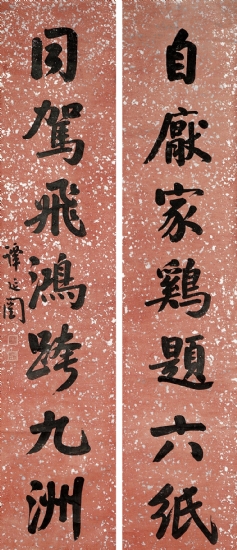 自厭家鷄題六紙
同駕飛鴻跨九洲
譚延闓